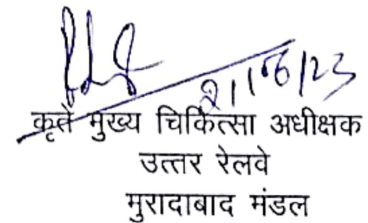 21/06/23
कृते मुख्य चिकित्सा अधीक्षक
उत्तर रेलवे
मुरादाबाद मंडल